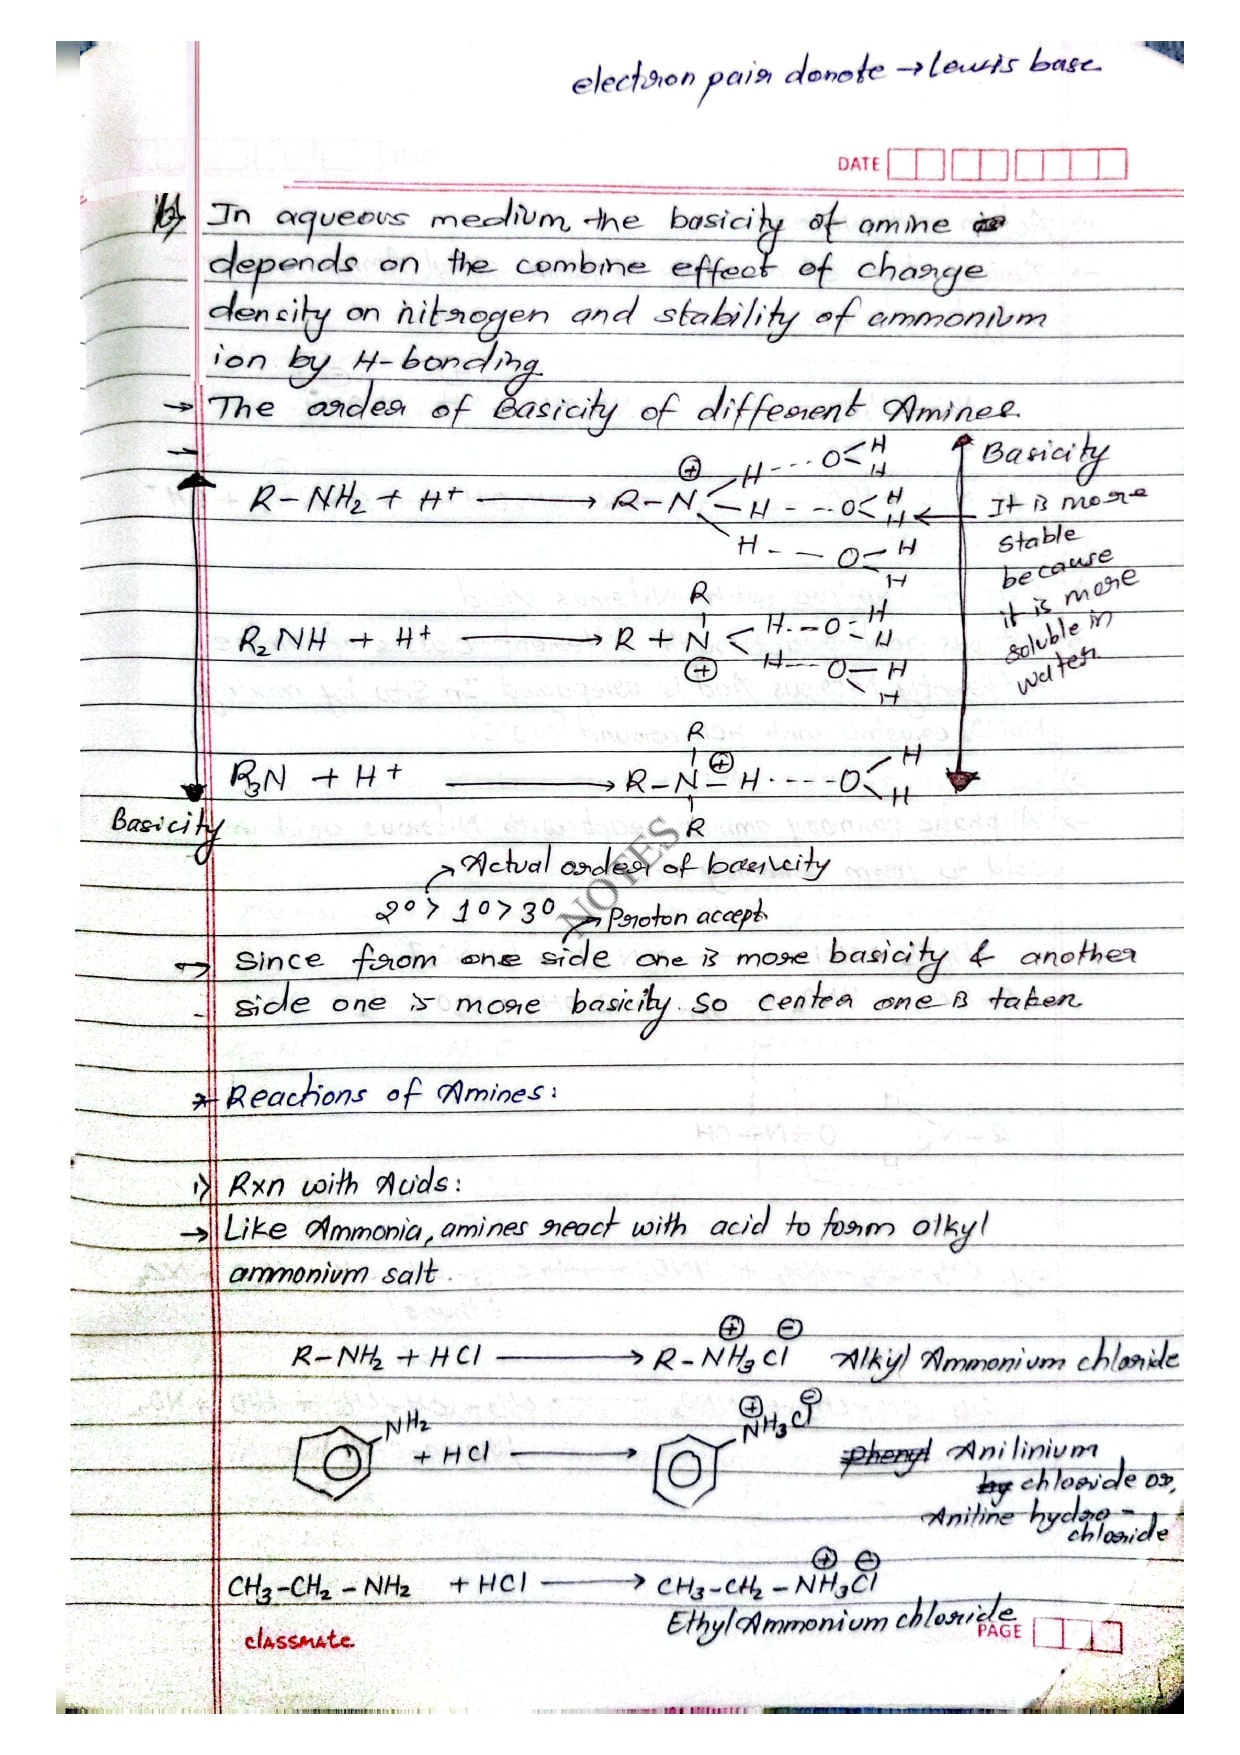 electron pair donate → Lewis base
DATE
b) In aqueous medium, the basicity of amine
depends on the combine effect of charge
density on nitrogen and stability of ammonium
ion by H-bonding.
→ The order of Basicity of different Amines.
R-NH₂ + H⁺ → R-N⊕ H---O H H
H---O H H
H---O H H
Basicity
It is more
stable
because
it is more
soluble in
water.
R₂NH + H⁺ → R + N⊕ R H---O-H H
H---O-H H
R₃N + H⁺ → R-N⊕-H----O H H
R
R
Basicity
NOTES
→ Actual order of basicity
2° > 1° > 3°
→ Proton accept.
→ Since from one side one is more basicity & another
side one is more basicity. So center one is taken
* Reactions of Amines:
1) Rxn with Acids:
→ Like Ammonia, amines react with acid to form alkyl
ammonium salt.
R-NH₂ + HCl → R-NH₃⊕ Cl⊖ Alkyl Ammonium chloride
NH₂ + HCl → NH₃⊕ Cl⊖
phenyl Anilinium
by chloride or,
Aniline hydro-
chloride
CH₃-CH₂-NH₂ + HCl → CH₃-CH₂-NH₃⊕ Cl⊖
Ethyl Ammonium chloride
classmate
PAGE